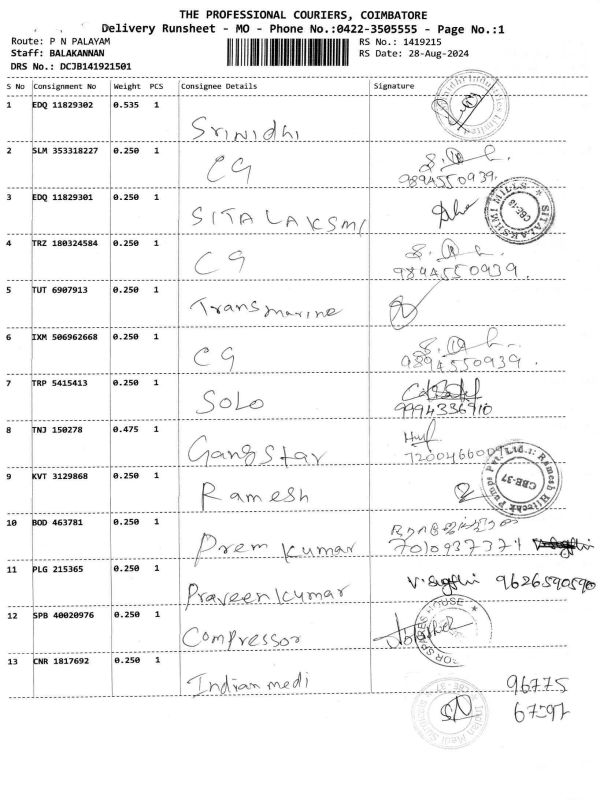 THE PROFESSIONAL COURIERS, COIMBATORE
Delivery Runsheet - MO - Phone No.:0422-3505555 - Page No.:1
Route: P N PALAYAM
RS No.: 1419215
Staff: BALAKANNAN
RS Date: 28-Aug-2024
DRS No.: DCJB141921501
S No Consignment No Weight PCS Consignee Details Signature
1 EDQ 11829302 0.535 1 Srinidhi
2 SLM 353318227 0.250 1 CG
9894550939.
3 EDQ 11829301 0.250 1 SITALAKSMI
SITALAKSHMI MILLS. * CBE-18
4 TRZ 180324584 0.250 1 CG
9894550939.
5 TUT 6907913 0.250 1 Transmarine
6 IXM 506962668 0.250 1 CG
9894550939.
7 TRP 5415413 0.250 1 SOLO
9994336910
8 TNJ 150278 0.475 1 Gangstar
7200466009
9 KVT 3129868 0.250 1 Ramesh
Ramesh Hitech Pumps Pvt. Ltd. CBE-37
10 BOD 463781 0.250 1 Prem kumar
7010937371
11 PLG 215365 0.250 1 Praveen kumar
9626590590
12 SPB 40020976 0.250 1 Compressor
SPARES HOUSE *
13 CNR 1817692 0.250 1 Indian medi
96775
67597